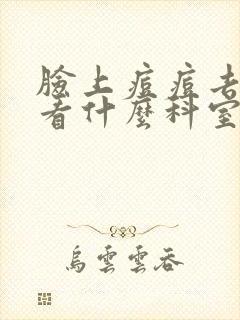 臉上痘痘去
看什麼科室
烏雲雲吞